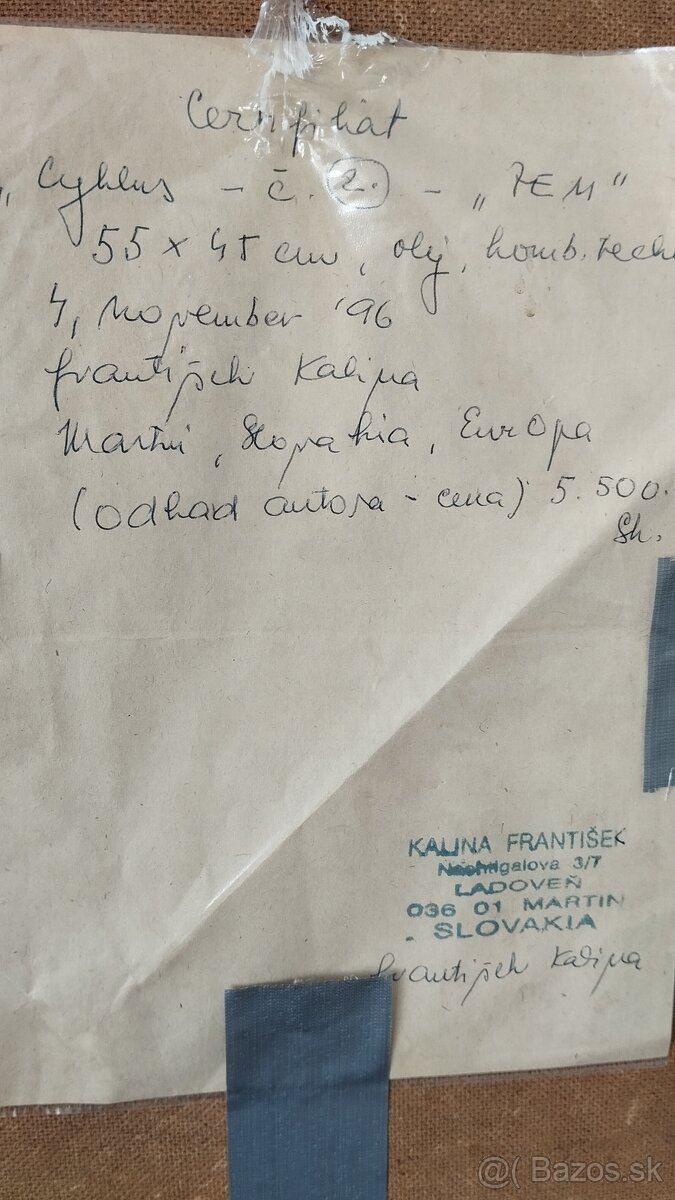 Certifikát
„Cyklus - č. 2. - „ZEM"
55 x 45 cm, olej, komb. tech
4, november '96
František Kalina
Martin, Slovakia, Európa
(odhad autora - cena) 5.500.
Sk.
KALINA FRANTIŠEK
3/7
LADOVEŇ
036 01 MARTIN
SLOVAKIA
František Kalina
@( Bazos.sk